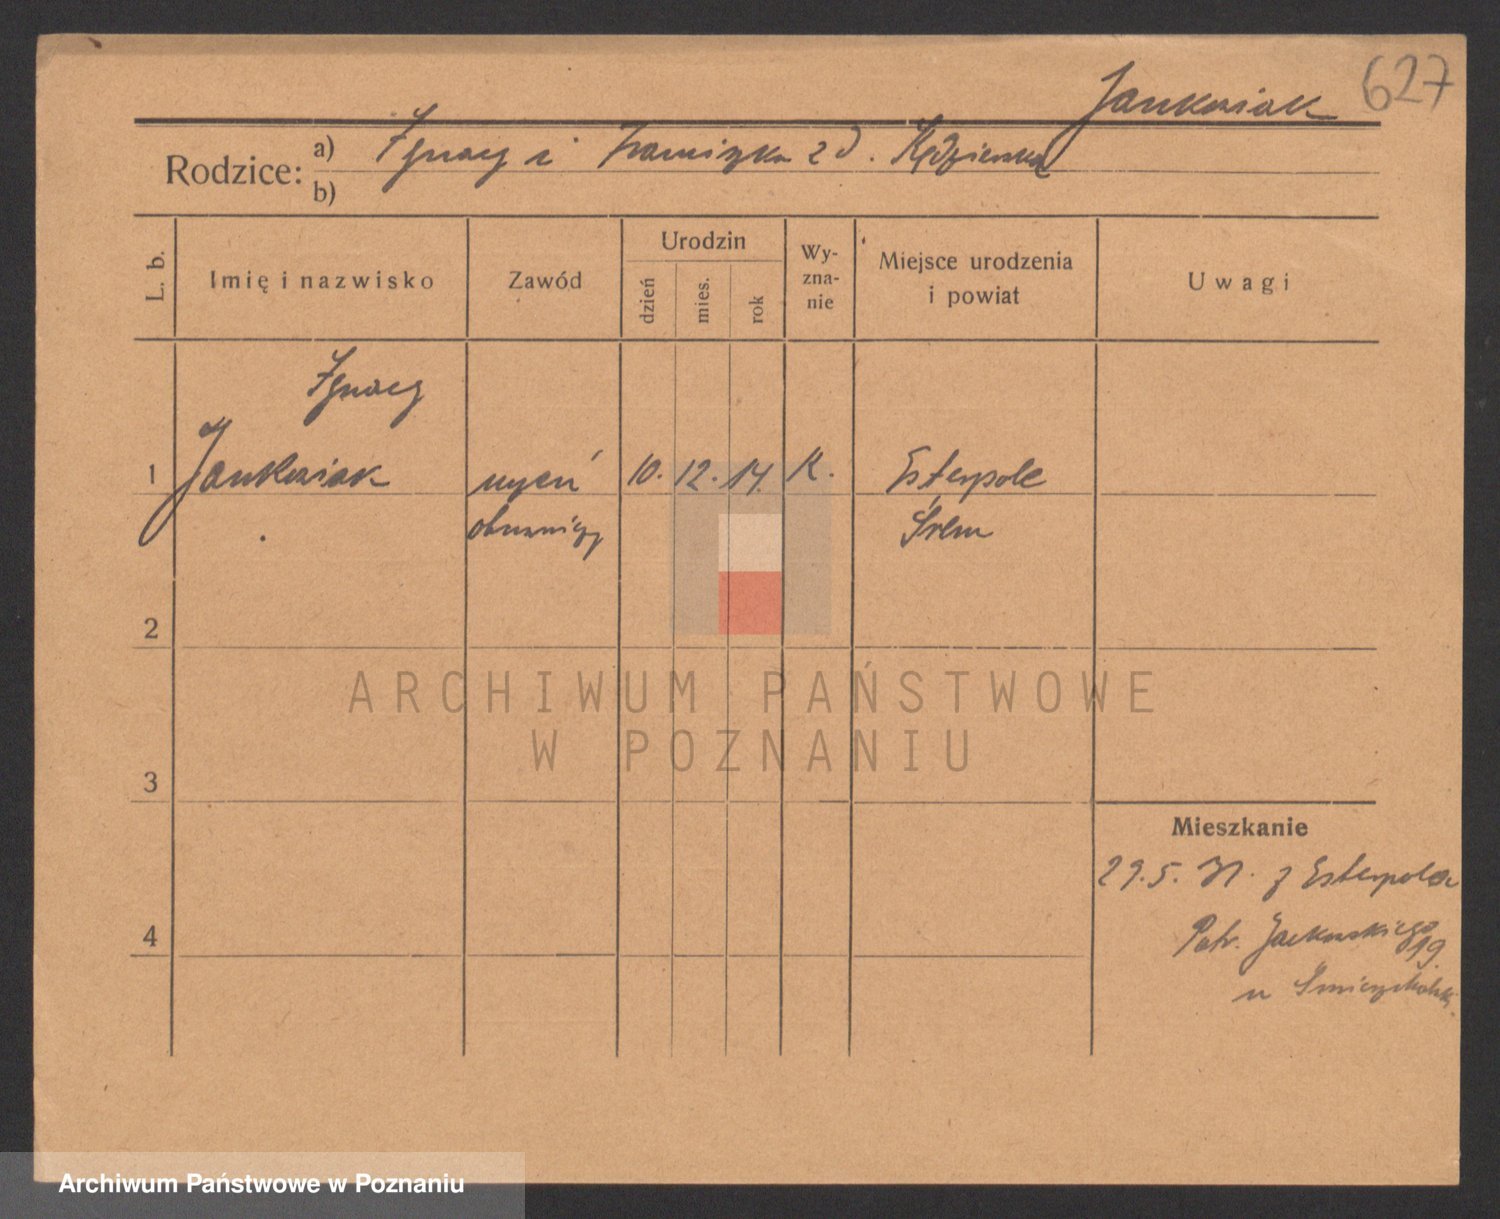 627
Jankowiak
Rodzice: a) Ignacy i Franciszka z d. Kędzierska
b)
L. b.
Imię i nazwisko
Zawód
Urodzin
dzień
mies.
rok
Wy-
zna-
nie
Miejsce urodzenia
i powiat
Uwagi
Ignacy
1 Jankowiak uczeń 10. 12. 14. K. Esterpole
Śrem
2
ARCHIWUM PAŃSTWOWE
W POZNANIU
3
Mieszkanie
29. 5. 31. z Esterpola
4
Patr. Jackowskiego 19.
u
Archiwum Państwowe w Poznaniu